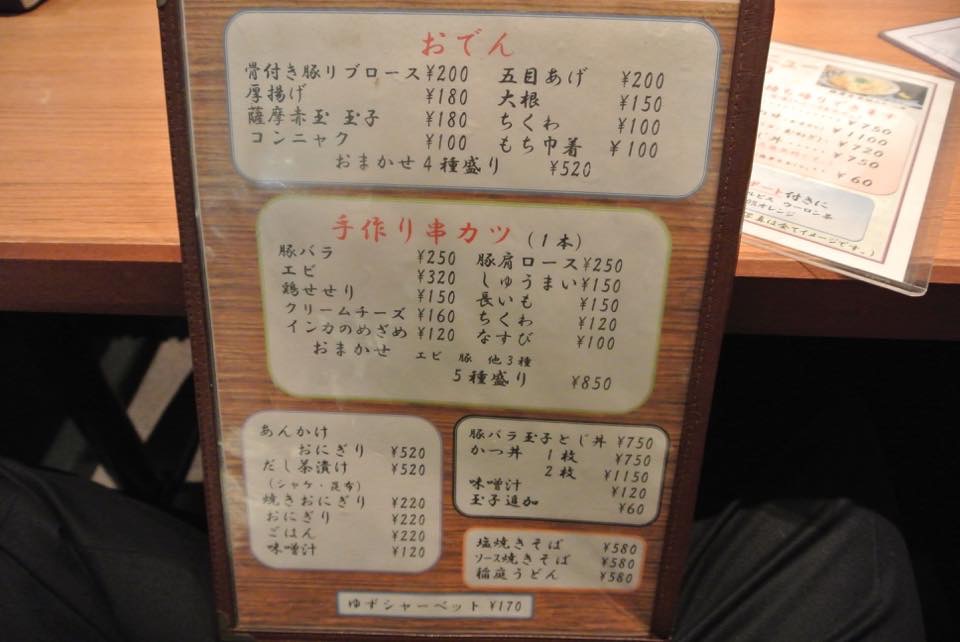 おでん
骨付き豚リブロース ¥200 五目あげ ¥200
厚揚げ ¥180 大根 ¥150
薩摩赤玉 玉子 ¥180 ちくわ ¥100
コンニャク ¥100 もち巾着 ¥100
おまかせ4種盛り ¥520
手作り串カツ (1本)
豚バラ ¥250 豚肩ロース ¥250
エビ ¥320 しゅうまい ¥150
鶏せせり ¥150 長いも ¥150
クリームチーズ ¥160 ちくわ ¥120
インカのめざめ ¥120 なすび ¥100
おまかせ エビ 豚 他3種
5種盛り ¥850
あんかけ
おにぎり ¥520
だし茶漬け ¥520
(シャケ・昆布)
焼きおにぎり ¥220
おにぎり ¥220
ごはん ¥220
味噌汁 ¥120
豚バラ玉子とじ丼 ¥750
かつ丼 1枚 ¥750
2枚 ¥1150
味噌汁 ¥120
玉子追加 ¥60
塩焼きそば ¥580
ソース焼きそば ¥580
稲庭うどん ¥580
ゆずシャーベット ¥170
¥750
¥1100
¥720
¥750
¥60
付きに
ウーロン茶
オレンジ
は全てイメージです。)